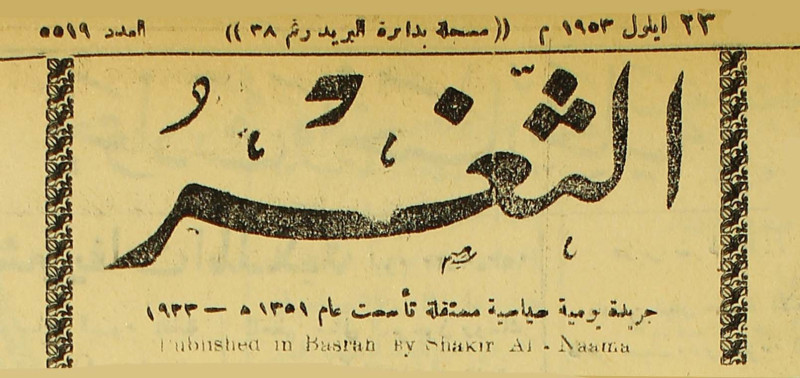 ٢٣ ايلول ١٩٥٣ م ((مسجلة بدائرة البريد رقم ٣٨)) العدد ٥٥١٩
الثغر
جريدة يومية سياسية مستقلة تأسست عام ١٣٥١ ه — ١٩٣٣
Published in Basrah By Shakir Al - Naama